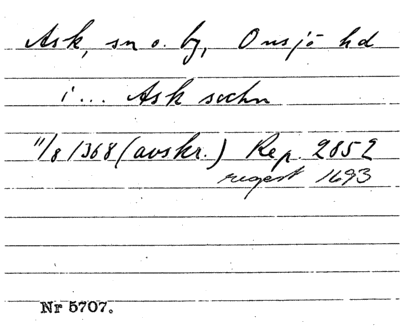 Ask, sn o. by, Onsjö hd
i... Ask sochn
11/8 1368 (avskr.) Rep. 2852
regest 1693
Nr 5707.